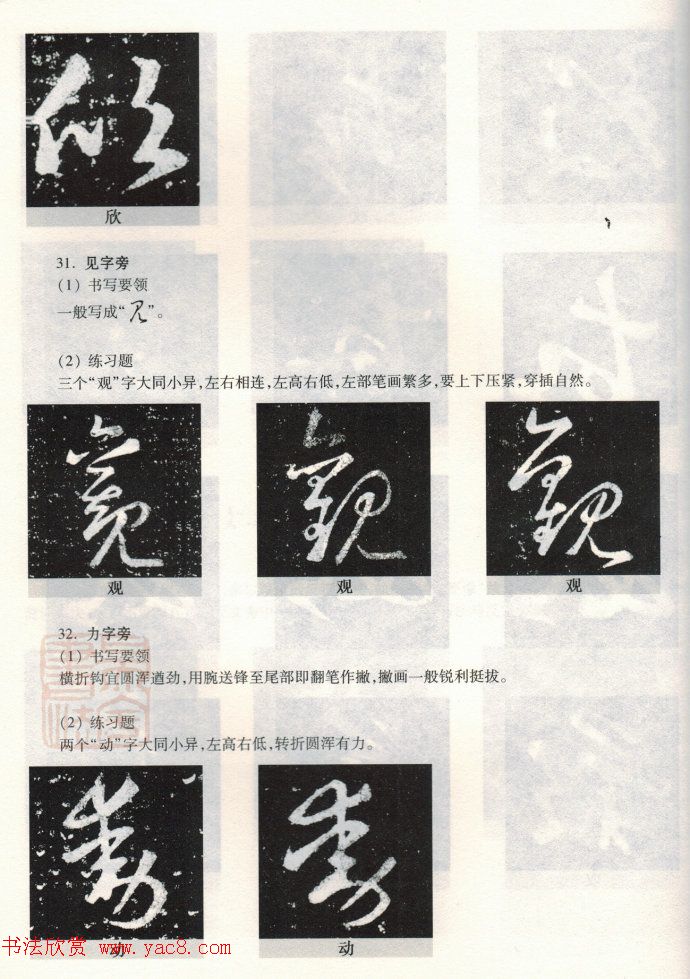 欣
31. 见字旁
(1) 书写要领
一般写成“见”。
(2) 练习题
三个“观”字大同小异,左右相连,左高右低,左部笔画繁多,要上下压紧,穿插自然。
观 观 观
32. 力字旁
(1) 书写要领
横折钩宜圆浑遒劲,用腕送锋至尾部即翻笔作撇,撇画一般锐利挺拔。
(2) 练习题
两个“动”字大同小异,左高右低,转折圆浑有力。
动 动
书法欣赏 www.yac8.com